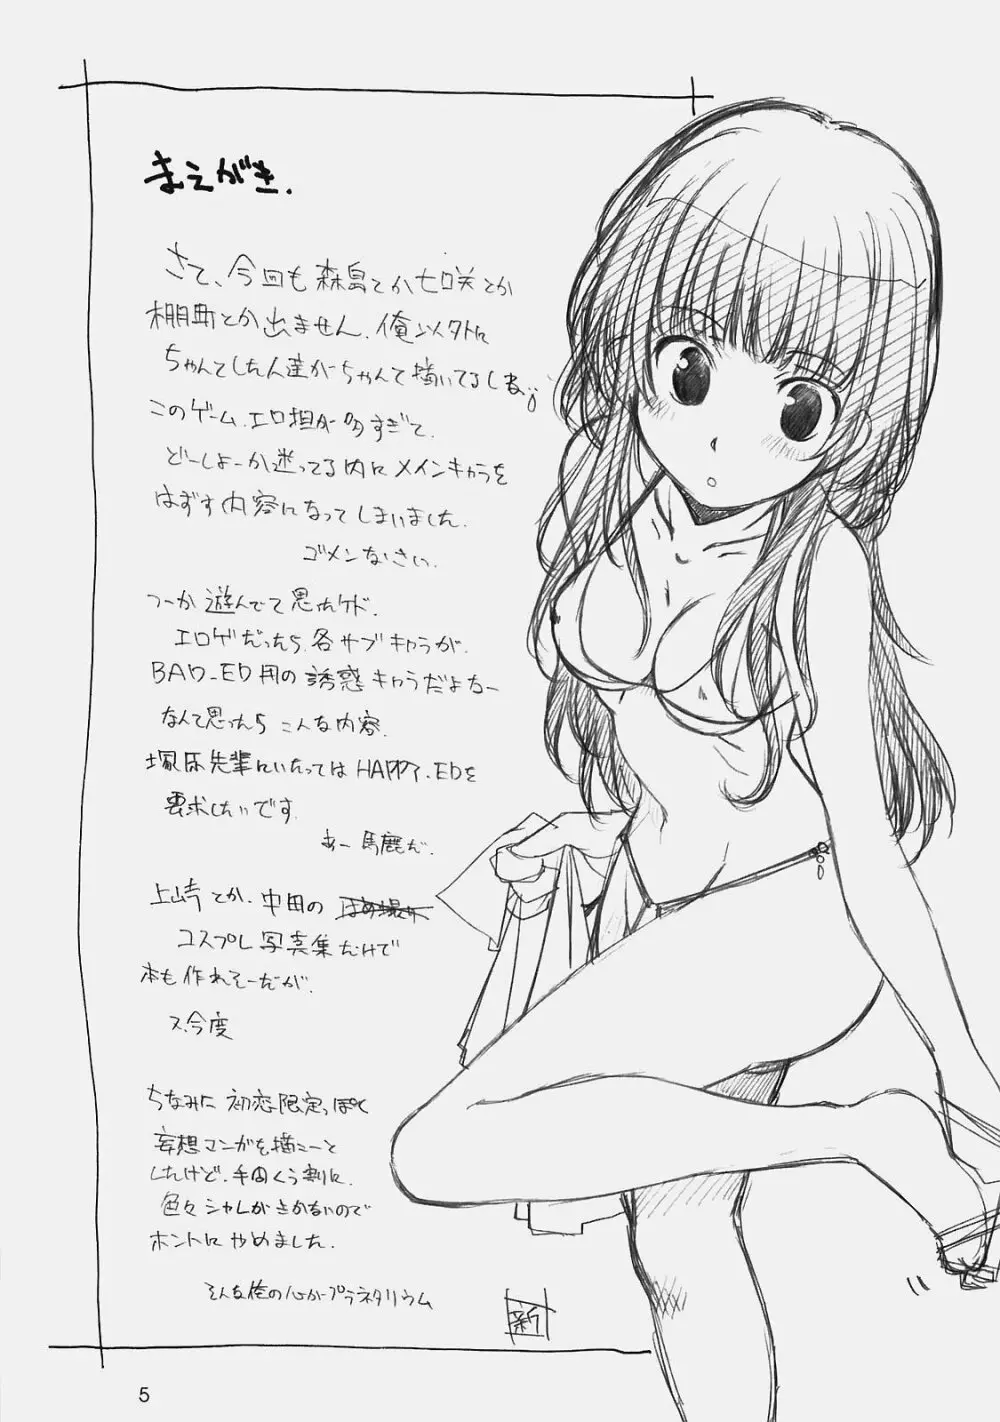 まえがき.
さて、今回も森島とか七咲とか
棚町とか出ません.俺以外に
ちゃんとした人達がちゃんと描いてるしね。
このゲーム.エロ担が多すぎて.
どーしよーか迷ってる内にメインキャラを
はずす内容になってしまいました.
ゴメンなさい.
つーか遊んでて思ったケド.
エロゲだったら.各サブキャラが.
BAD_ED用の誘惑キャラだよなー
なんて思ったらこんな内容.
塚原先輩にいたってはHAPPY.EDを
要求したいです.
あー馬鹿だ.
上崎とか.中田の
コスプレ写真集だけで
本も作れそーだが.
ス.今度
ちなみに初恋限定っぽく
妄想マンガを描こーと
したけど.手間くう割に.
色々シャレがきかないので
ホントにやめました.
そんな俺の心がプラネタリウム
新
5